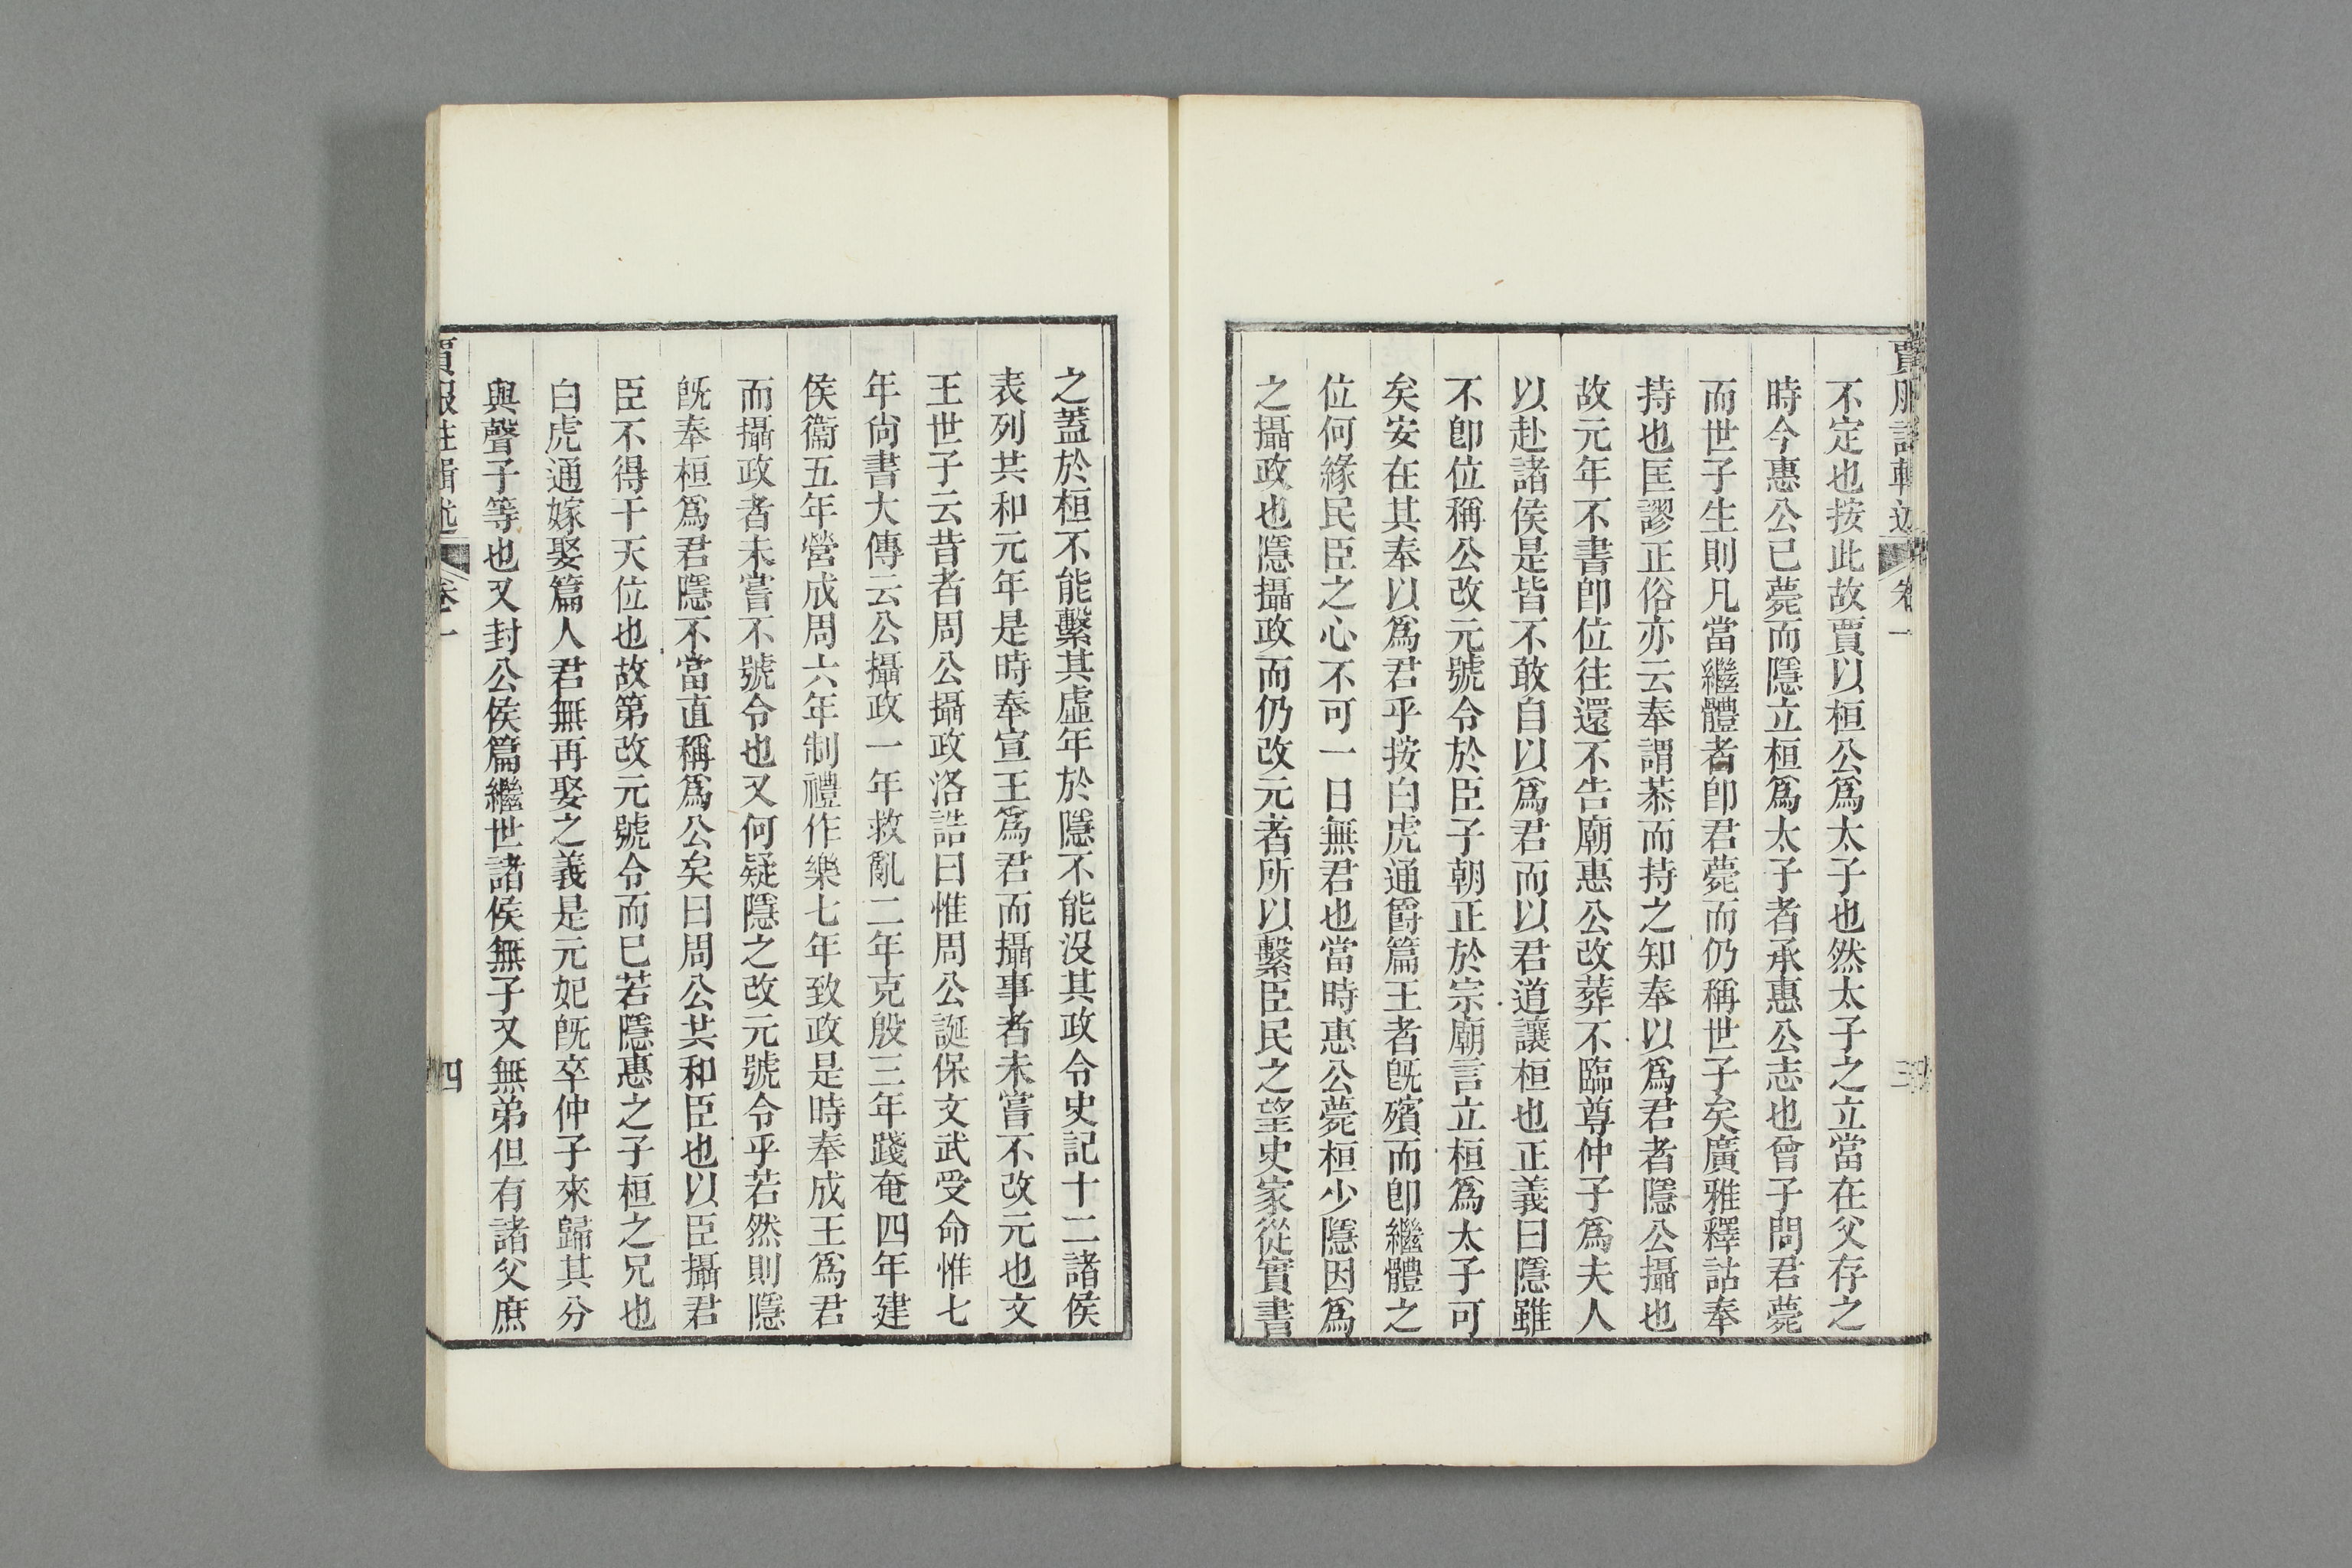 不定也按此故賈以桓公爲太子也然太子之立當在父存之
時今惠公已薨而隱立桓爲太子者承惠公志也曾子問君薨
而世子生則凡當繼體者卽君薨而仍稱世子矣廣雅釋詁奉
持也匡謬正俗亦云奉謂恭而持之知奉以爲君者隱公攝也
故元年不書卽位往還不告廟惠公改葬不臨尊仲子爲夫人
以赴諸侯是皆不敢自以爲君而以君道讓桓也正義曰隱雖
不卽位稱公改元號令於臣子朝正於宗廟言立桓爲太子可
矣安在其奉以爲君乎按白虎通爵篇王者旣殯而卽繼體之
位何緣民臣之心不可一日無君也當時惠公薨桓少隱因爲
之攝政也隱攝政而仍改元者所以繫臣民之望史家從實書
之蓋於桓不能繫其虛年於隱不能沒其政令史記十二諸侯
表列共和元年是時奉宣王爲君而攝事者未嘗不改元也文
王世子云昔者周公攝政洛誥曰惟周公誕保文武受命惟七
年尙書大傳云公攝政一年救亂二年克殷三年踐奄四年建
侯衞五年營成周六年制禮作樂七年致政是時奉成王爲君
而攝政者未嘗不號令也又何疑隱之改元號令乎若然則隱
旣奉桓爲君隱不當直稱爲公矣曰周公共和臣也以臣攝君
臣不得干天位也故第改元號令而已若隱惠之子桓之兄也
白虎通嫁娶篇人君無再娶之義是元妃旣卒仲子來歸其分
與聲子等也又封公侯篇繼世諸侯無子又無弟但有諸父庶
卷一
四